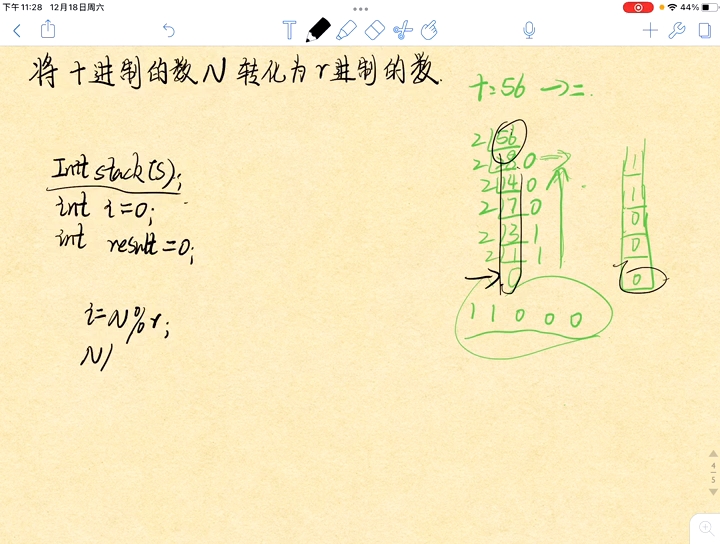 下午11:28 12月18日周六
44%
将十进制的数N转化为r进制的数.
十:56 →二.
Initstack(S);
int i=0;
int result=0;
i=N%r;
N/
2 56
2 28 0
2 14 0
2 7 0
2 3 1
2 1 1
0
1 1 0 0 0
1
1
0
0
0
4
5